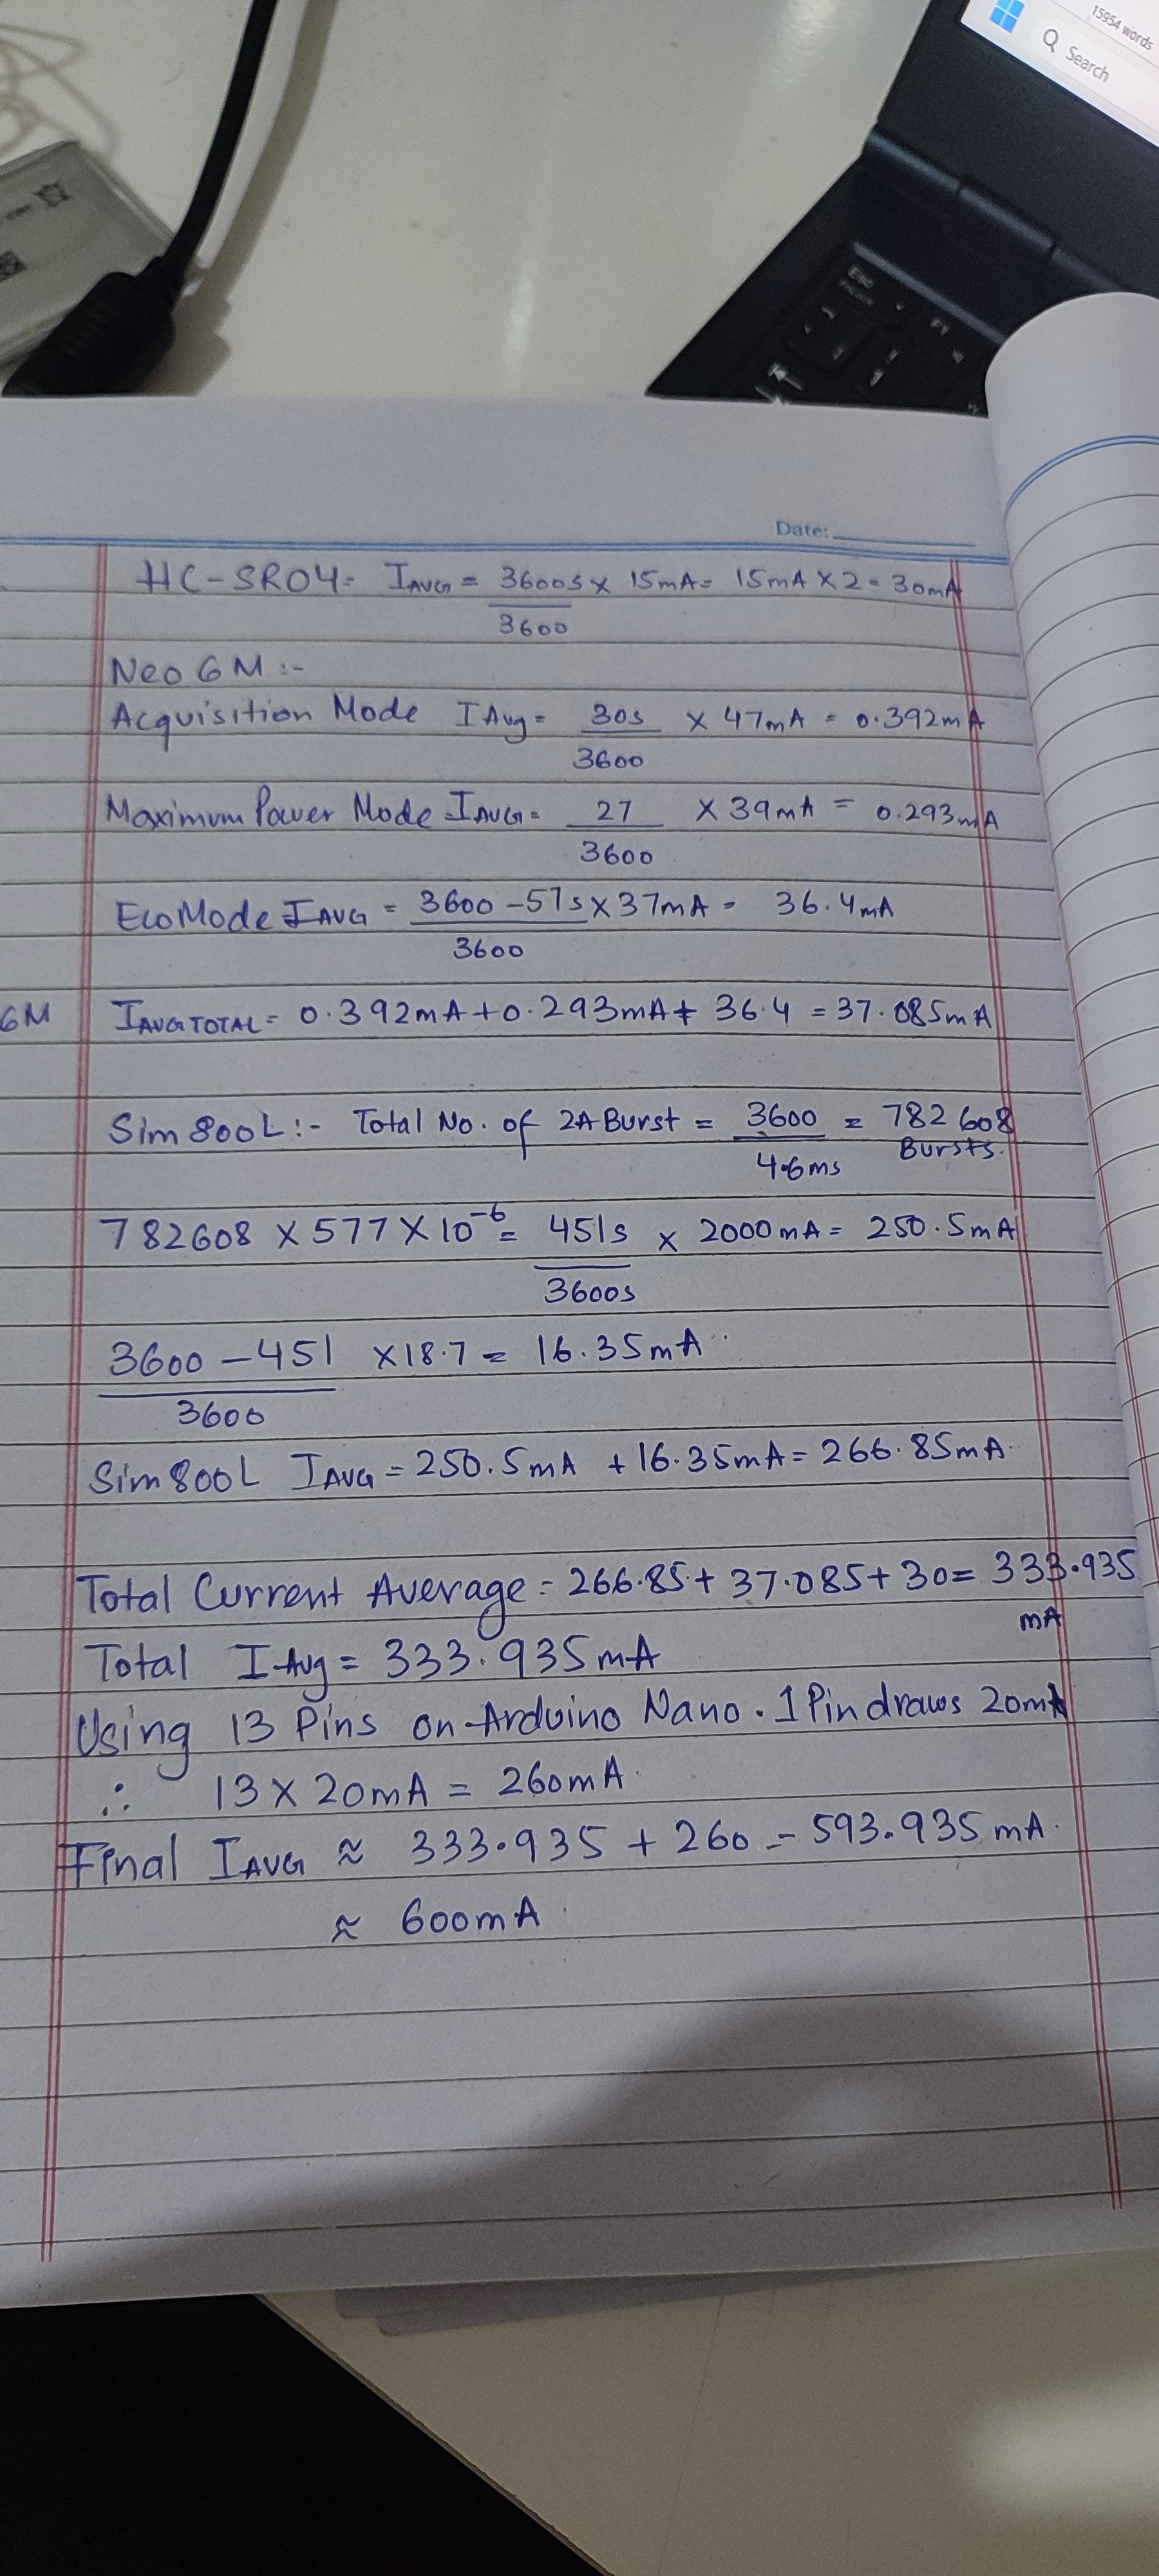 15954 words
Search
Esc
F1
Date:
HC-SR04- IAVG = 3600s/3600 x 15mA= 15mA X 2 = 30mA
Neo 6M :-
Acquisition Mode IAvg= 30s/3600 x 47mA = 0.392mA
Maximum Power Mode IAVG= 27/3600 X 39mA = 0.293mA
Eco Mode IAVG = 3600-57s/3600 X 37mA = 36.4mA
6M IAVG TOTAL= 0.392mA+0.293mA+ 36.4 = 37.085mA
Sim 800L:- Total No. of 2A Burst = 3600/4.6ms = 782608 Bursts.
782608 X 577 X 10-6= 451s/3600s x 2000mA = 250.5mA
3600-451/3600 X18.7 = 16.35mA
Sim 800L IAVG = 250.5mA +16.35mA= 266.85mA.
Total Current Average= 266.85+ 37.085+ 30= 333.935 mA
Total IAvg = 333.935mA
Using 13 Pins on Arduino Nano. 1Pin draws 20mA
∴ 13 X 20mA = 260mA.
Final IAVG ≈ 333.935 + 260 = 593.935mA.
≈ 600mA.